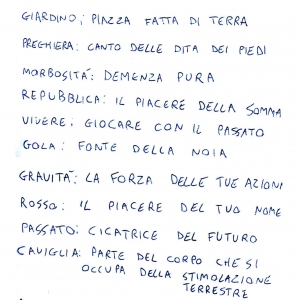 GIARDINO; PIAZZA FATTA DI TERRA
PREGHIERA: CANTO DELLE DITA DEI PIEDI
MORBOSITÀ: DEMENZA PURA
REPUBBLICA: IL PIACERE DELLA SOMMA
VIVERE: GIOCARE CON IL PASSATO
GOLA: FONTE DELLA NOIA
GRAVITÀ: LA FORZA DELLE TUE AZIONI
ROSSO: IL PIACERE DEL TUO NOME
PASSATO: CICATRICE DEL FUTURO
CAVIGLIA: PARTE DEL CORPO CHE SI
OCCUPA DELLA STIMOLAZIONE
TERRESTRE